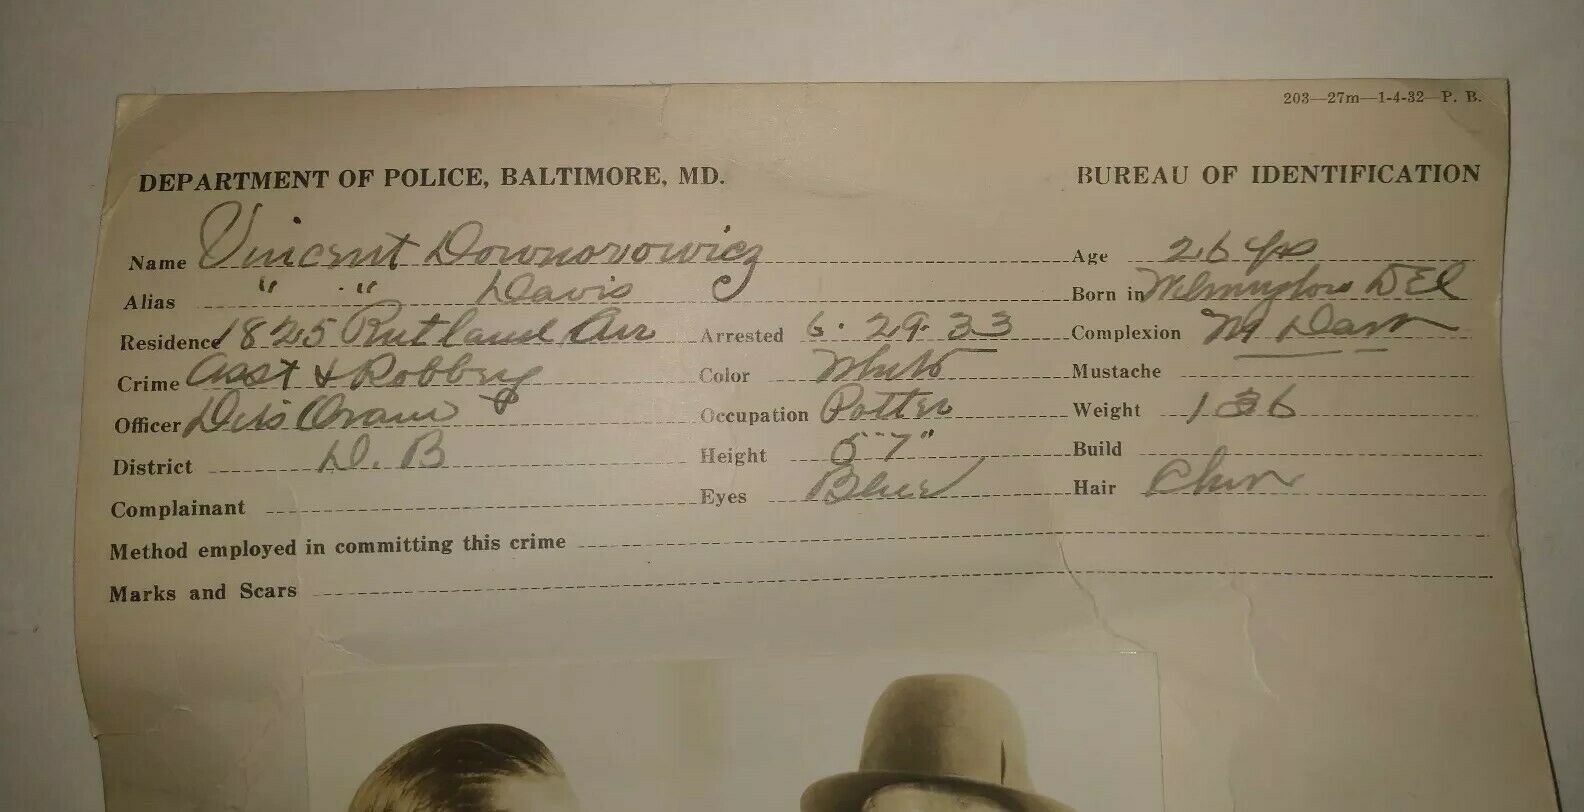 203—27m—1-4-32—P. B.
DEPARTMENT OF POLICE, BALTIMORE, MD. BUREAU OF IDENTIFICATION
Name Vincent Downorowicz Age 26 yrs
Alias " " Davis Born in Wilmington DEL
Residence 1825 Rutland Ave Arrested 6-29-33 Complexion M Dark
Crime Asst & Robbery Color White Mustache
Officer Occupation Potter Weight 136
District D. B Height 5"7" Build
Complainant Eyes Blue Hair
Method employed in committing this crime
Marks and Scars